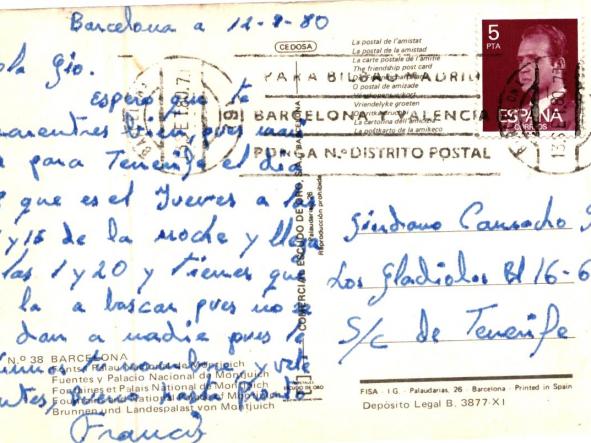 Barcelona a 12-9-80
ola Gio.
espero que te
encuentres bien pues
para Tenerife el dia
que es el Jueves a las
y 15 de la noche y
las 1 y 20 y tienes que
la a buscar pues no
dan a nadie pues
nombre, y vete
antes, Bueno hasta Pronto
Francis
CEDOSA
La postal de l'amistat
La postal de la amistad
La carte postale de l'amitié
The friendship post card
O postal de amizade
Vriendelyke groeten
La cartolina dell'amicizia
La poŝtkarto de la amikeco
5
PTA
ESPAÑA
CORREOS
PARA BILBAO MADRID
BARCELONA Y VALENCIA
PONGA N.º DISTRITO POSTAL
COMERCIAL ESCUDO DE ORO, S.A.
Palaudarias, 26
BARCELONA
Reproducción prohibida
Giordano Camacho
Los Gladiolos Bl 16-6
S/c de Tenerife
N.º 38 BARCELONA
Fonts i Palau Nacional de Montjuich
Fuentes y Palacio Nacional de Montjuich
Fontaines et Palais National de Montjuich
Fountains and National Palace of Montjuich
Brunnen und Landespalast von Montjuich
ESCUDO DE ORO
FISA - I.G. - Palaudarias, 26 - Barcelona - Printed in Spain
Depósito Legal B. 3877-XI